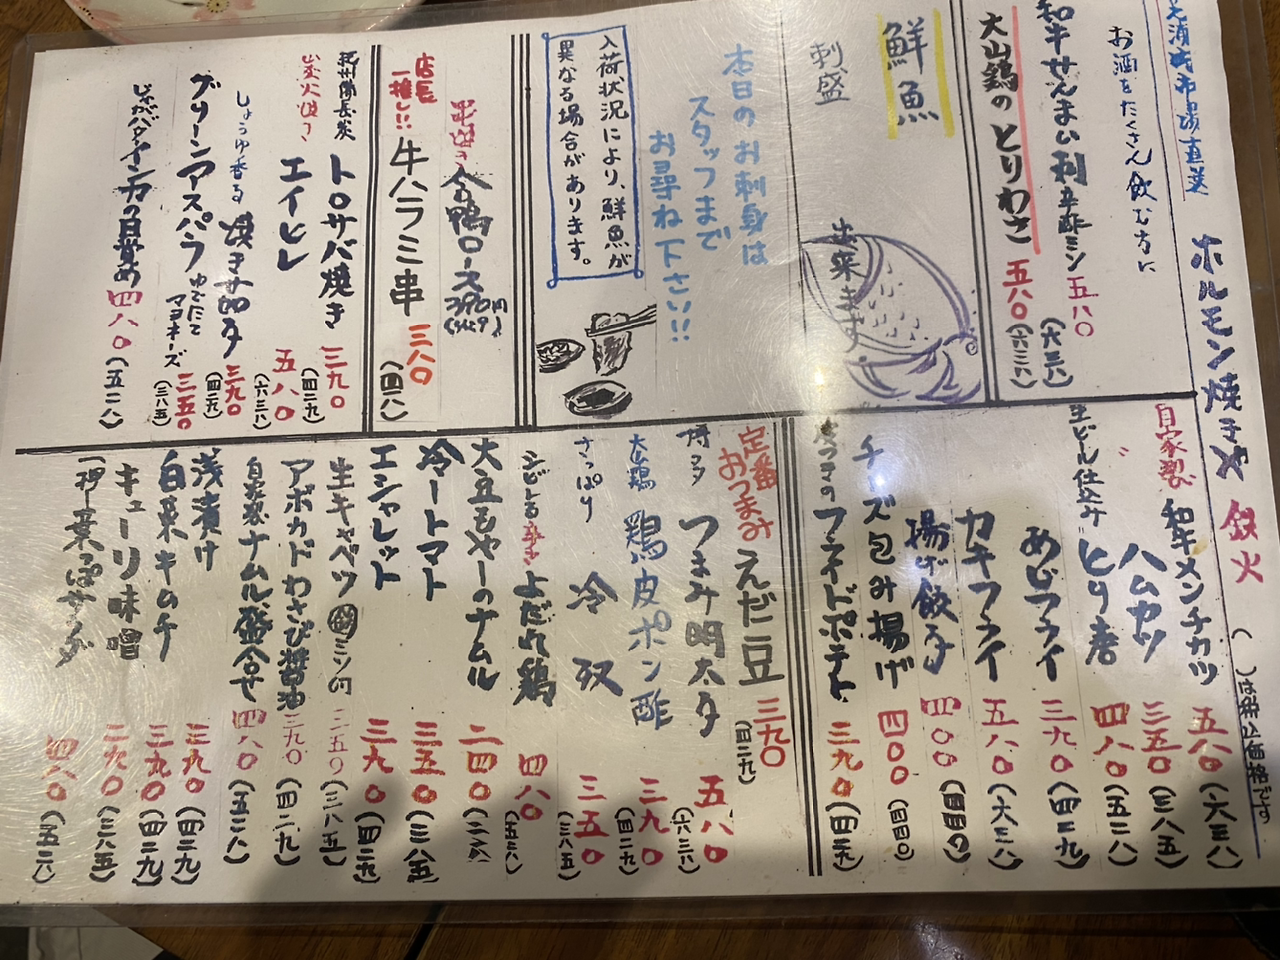 市場直菜
ホルモン焼きや 鉄火
( )は税込価格です
お酒をたくさん飲む方に
和牛せんまい刺 辛酢ミソ 五八〇 (六三八)
大山鶏のとりわさ 五八〇 (六三八)
鮮魚
刺盛 出来ます
本日のお刺身は
スタッフまで
お尋ね下さい!!
入荷状況により、鮮魚が
異なる場合があります。
合鴨ロース 390円
店長一推し!! 牛ハラミ串 三八〇 (四一八)
紀州備長炭 トロサバ焼き 三九〇 (四二九)
炭火焼き エイヒレ 五八〇 (六三八)
しょうゆ香る 焼き 三九〇 (四二九)
グリーンアスパラ ゆでたてマヨネーズ 三五〇 (三八五)
じゃがバタ 四八〇 (五二八)
自家製 和牛メンチカツ 五八〇 (六三八)
ハムカツ 三五〇 (三八五)
生ビール仕込み とり唐 四八〇 (五二八)
あじフライ 三九〇 (四二九)
カキフライ 五八〇 (六三八)
揚げ餃子 四〇〇 (四四〇)
チーズ包み揚げ 四〇〇 (四四〇)
皮つきのフライドポテト 三九〇 (四二九)
定番おつまみ
えだ豆 三九〇 (四二九)
博多 つまみ明太子 五八〇 (六三八)
大山鶏 鶏皮ポン酢 三九〇 (四二九)
さっぱり 冷奴 三五〇 (三八五)
シビレる辛さ よだれ鶏 四八〇 (五二八)
大豆もやしのナムル 二四〇
冷トマト 三五〇 (三八五)
エシャレット 三九〇 (四二九)
生キャベツ ミソ付 三五〇 (三八五)
アボカドわさび醤油 三九〇 (四二九)
自家製ナムル盛合せ 四八〇 (五二八)
浅漬け 三九〇 (四二九)
白菜キムチ 三九〇 (四二九)
キューリ味噌
葉っぱサラダ 四八〇 (五二八)